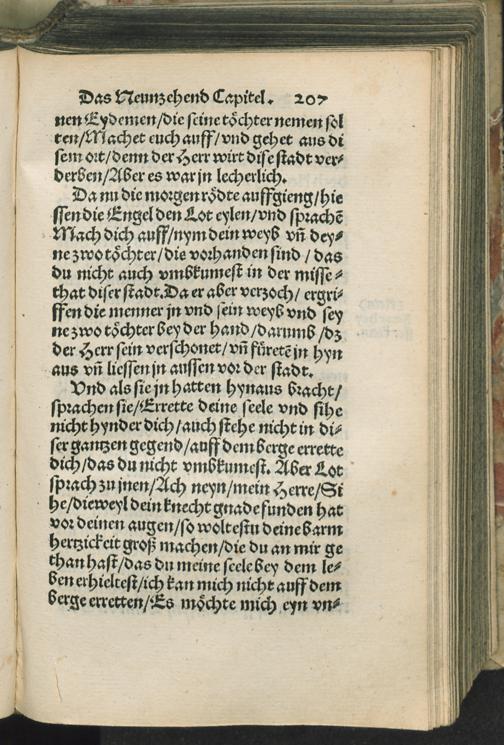 Das Neunzehend Capitel. 207
nen Eydemen/die seine töchter nemen sol
ten/Machet euch auff/vnd gehet aus di
sem ort/denn der Herr wirt dise stadt ver⸗
derben/Aber es war jn lecherlich.
Da nu die morgen rödte auffgieng/hie
ssen die Engel den Lot eylen/vnd sprachẽ
Mach dich auff/nym dein weyb vñ dey⸗
ne zwo töchter/die vorhanden sind/das
du nicht auch vmbkumest in der misse⸗
that diser stadt. Da er aber verzoch/ergri⸗
ffen die menner jn vnd sein weyb vnd sey
ne zwo töchter bey der hand/darumb/dz
der Herr sein verschonet/vñ füretẽ jn hyn
aus vñ liessen jn aussen vor der stadt.
Vnd als sie jn hatten hynaus bracht/
sprachen sie/Errette deine seele vnd sihe
nicht hynder dich/auch stehe nicht in di⸗
ser gantzen gegend/auff dem berge errette
dich/das du nicht vmbkumest. Aber Lot
sprach zu jnen/Ach neyn/mein Herre/Si
he/dieweyl dein knecht gnade funden hat
vor deinen augen/so woltestu deine barm
hertzickeit groß machen/die du an mir ge
than hast/das du meine seele bey dem le⸗
ben erhieltest/ich kan mich nicht auff dem
berge erretten/Es möchte mich eyn vn⸗